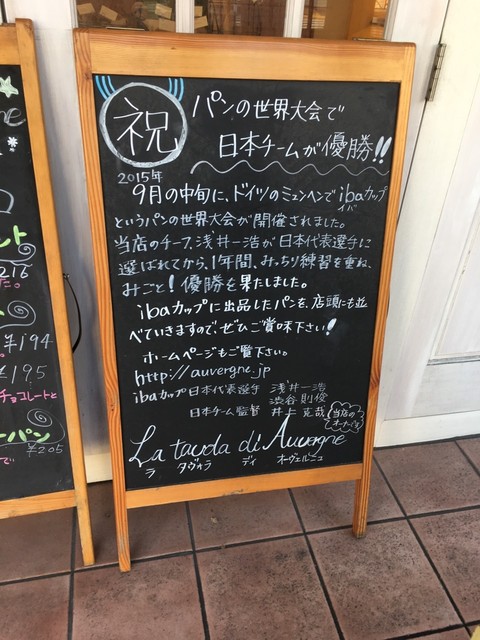 祝
パンの世界大会で
日本チームが優勝!!
2015年
9月の中旬に、ドイツのミュンヘンでibaカップ
イバ
というパンの世界大会が開催されました。
当店のチーフ、浅井一浩が日本代表選手に
選ばれてから、1年間、みっちり練習を重ね、
みごと!優勝を果たしました。
ibaカップに出品したパンを、店頭にも並
べていきますので、ぜひご賞味下さい!
ホームページもご覧下さい。
http://auvergne.jp
ibaカップ日本代表選手 浅井一浩
渋谷則俊
日本チーム監督 井上克哉
当店の
オーナーです
La tavola di Auvergne
ラ タヴォラ ディ オーヴェルニュ
ント
216
¥194
¥195
チョコレートと
ーパン
¥205